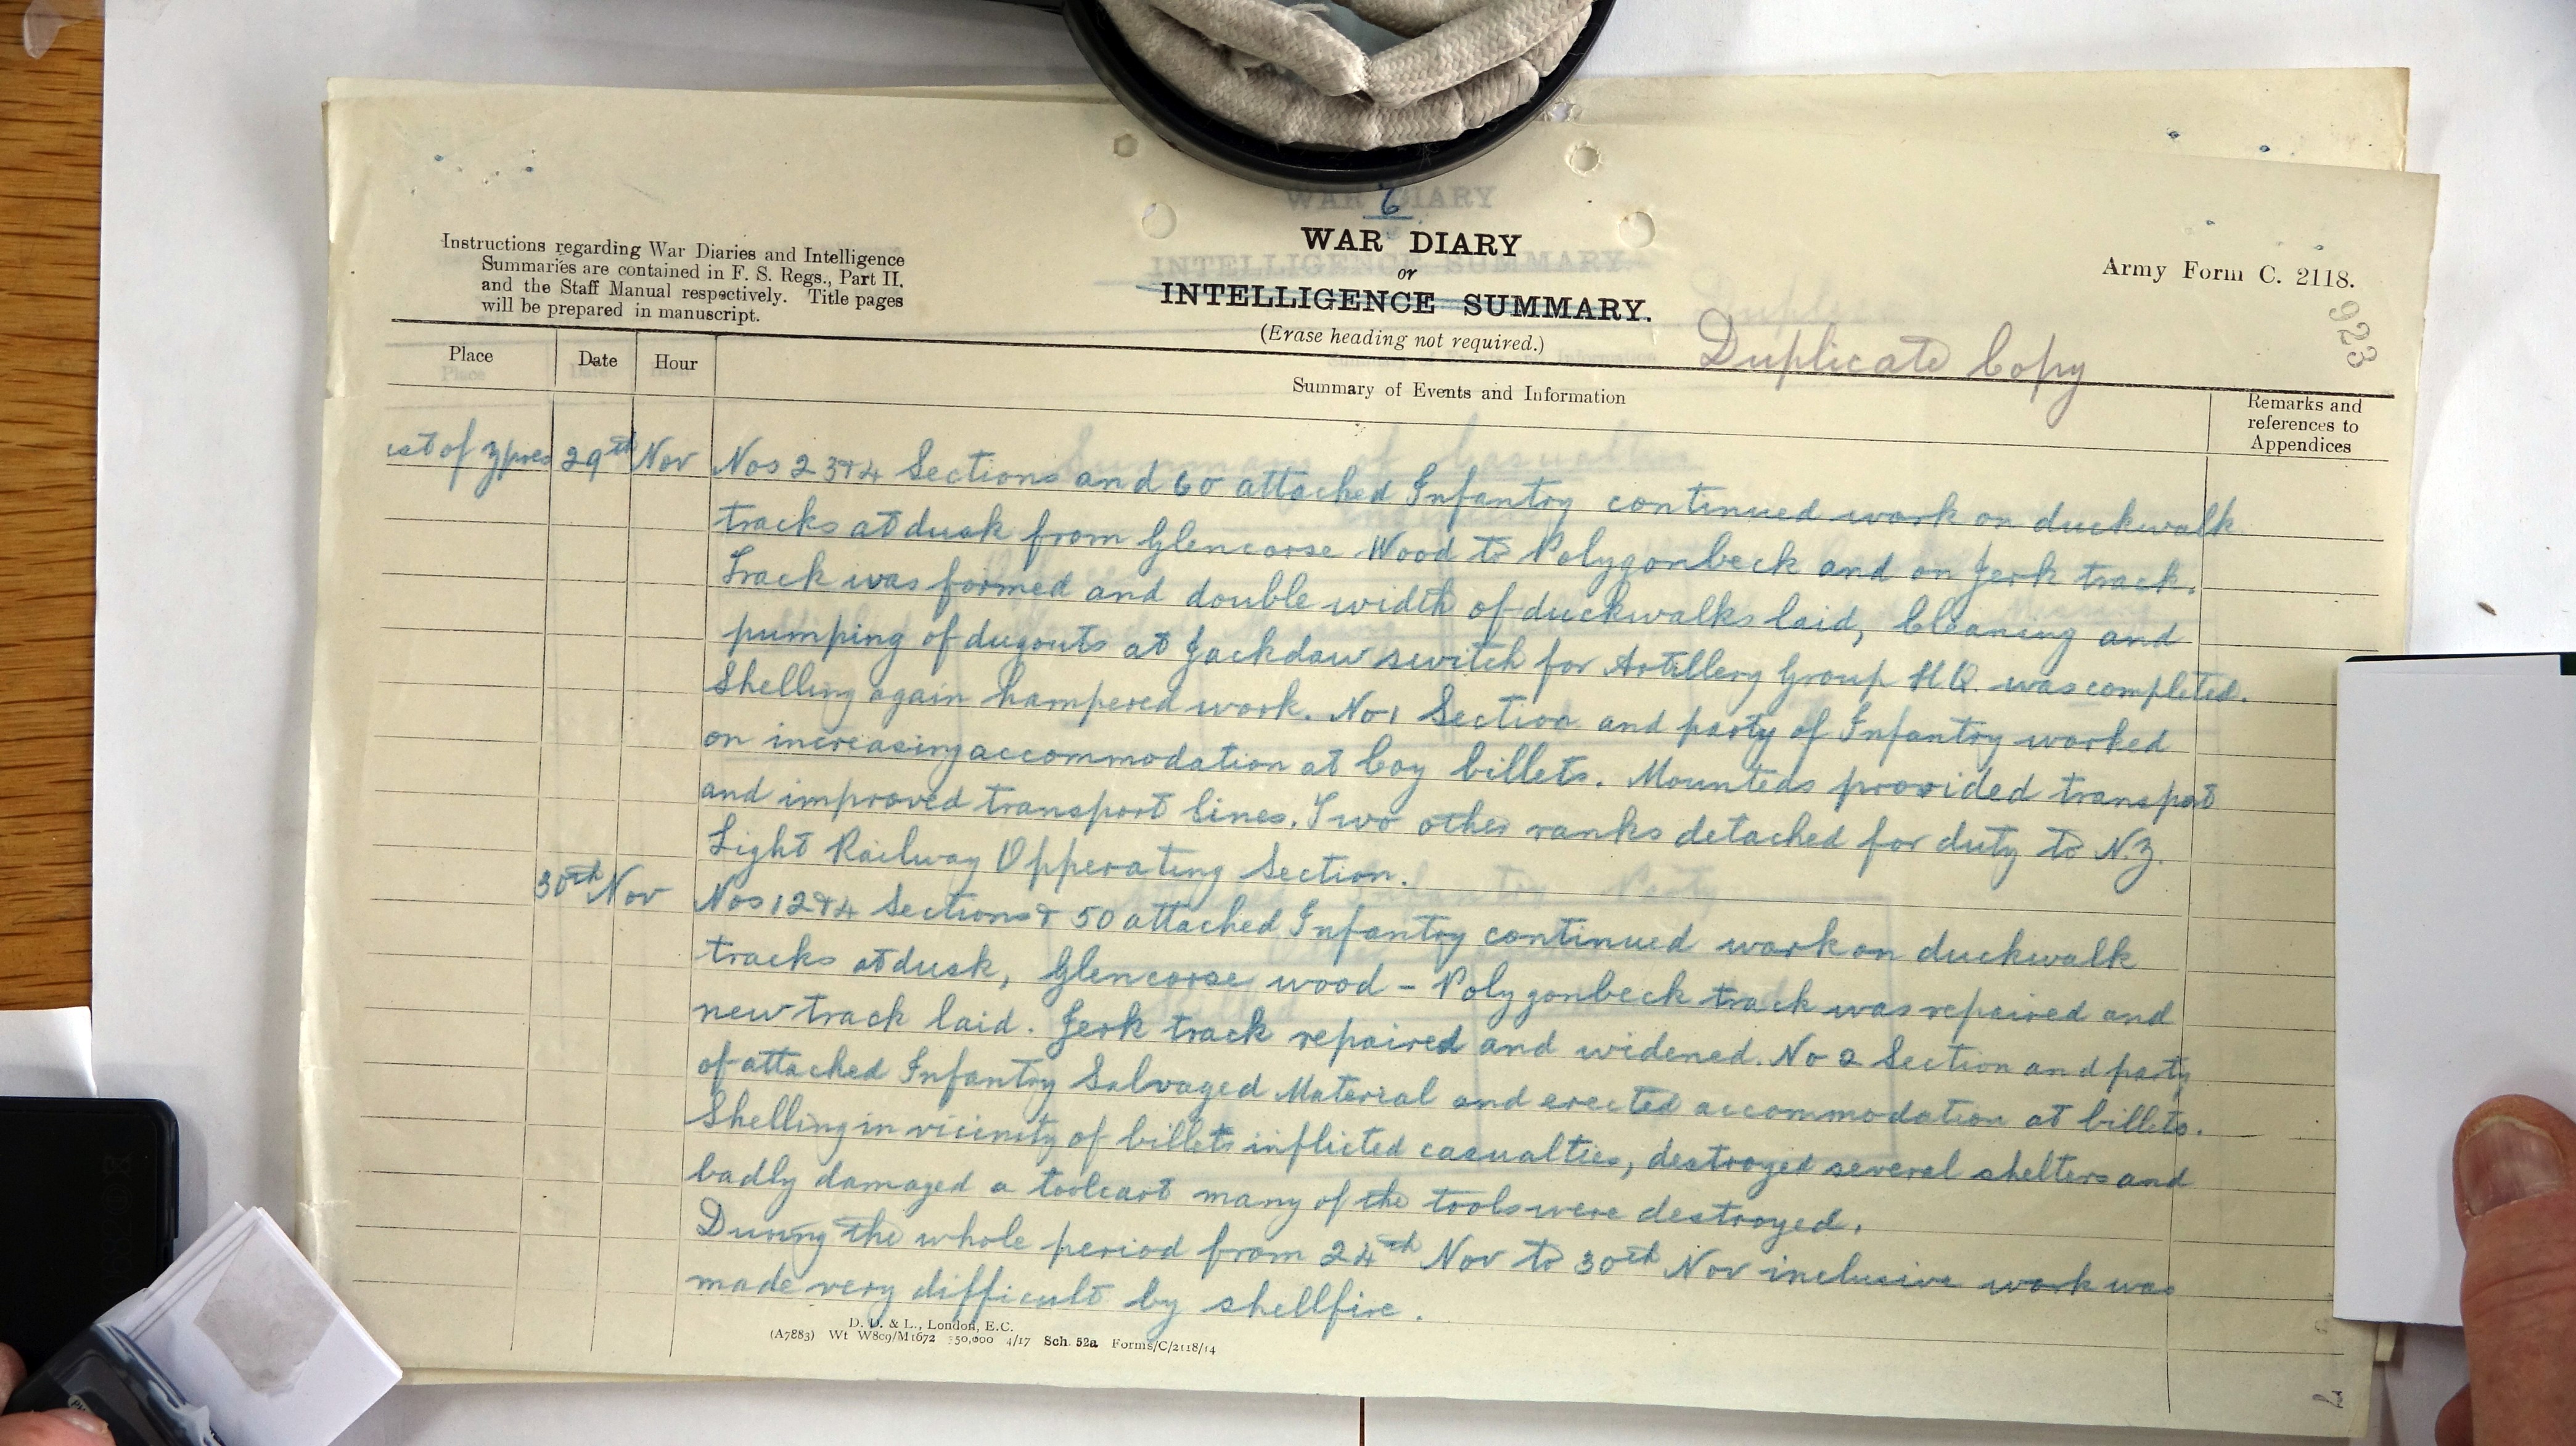 6
WAR DIARY
or
INTELLIGENCE SUMMARY.
(Erase heading not required.)
Instructions regarding War Diaries and Intelligence
Summaries are contained in F. S. Regs., Part II.
and the Staff Manual respectively. Title pages
will be prepared in manuscript.
Army Form C. 2118.
923
Duplicate Copy
Place Date Hour Summary of Events and Information Remarks and
references to
Appendices
est of Ypres 29th Nov Nos 2 3 & 4 Sections and 60 attached Infantry continued work on duckwalk
tracks at dusk from Glencorse Wood to Polygonbeck and on Jerk track.
Track was formed and double width of duckwalks laid, Cleaning and
pumping of dugouts at Jackdaw switch for Artillery Group H.Q. was completed.
Shelling again hampered work. No 1 Section and party of Infantry worked
on increasing accommodation at Coy billets. Mounteds provided transport
and improved transport lines. Two other ranks detached for duty to N.Z.
Light Railway Opperating Section.
30th Nov Nos 1 2 & 4 Sections & 50 attached Infantry continued work on duckwalk
tracks at dusk, Glencorse wood - Polygonbeck track was repaired and
new track laid. Jerk track repaired and widened. No 2 Section and party
of attached Infantry Salvaged Material and erected accommodation at billets.
Shelling in vicinity of billets inflicted casualties, destroyed several shelters and
badly damaged a toolcart many of the tools were destroyed.
During the whole period from 24th Nov to 30th Nov inclusive work was
made very difficult by shellfire.
D. D. & L., London, E.C.
(A7883) Wt W809/M1672 350,000 4/17 Sch. 52a Forms/C/2118/14